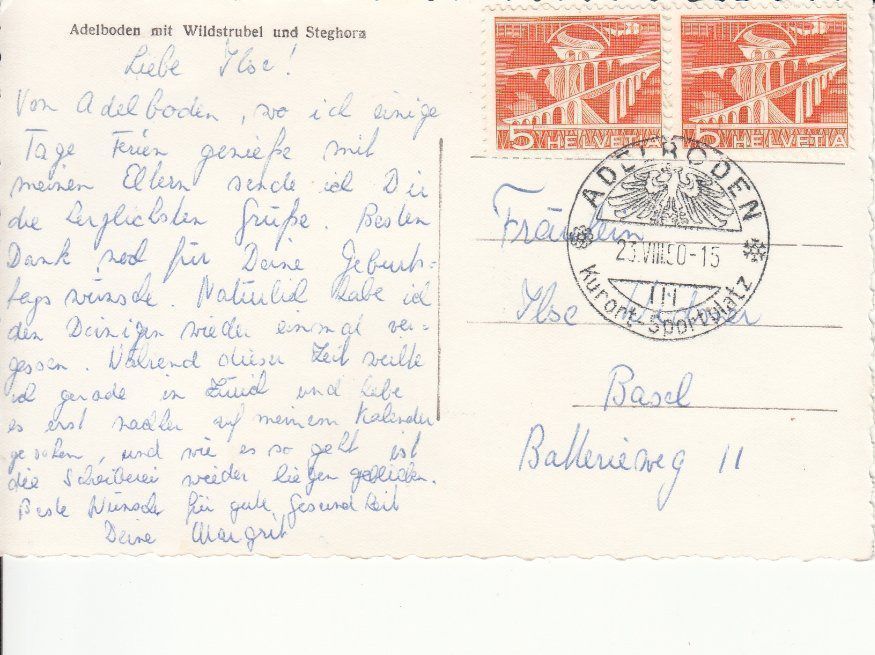 Adelboden mit Wildstrubel und Steghorn
Liebe Ilse!
Von Adelboden, wo ich einige
Tage Ferien genieße mit
meinen Eltern sende ich Dir
die herzlichsten Grüße. Besten
Dank noch für Deine Geburts-
tagswünsche. Natürlich habe ich
den Deinigen wieder einmal ver-
gessen. Während dieser Zeit weilte
ich gerade in Zürich und habe
es erst nachher auf meinem Kalender
gesehen, und wie es so geht ist
die Schreiberei wieder liegen geblieben.
Beste Wünsche für gute Gesundheit
Deine Margrit
5 HELVETIA
5 HELVETIA
ADELBODEN
23.VIII.50-15
Kurort-Sportplatz
Fräulein
Ilse
Basel
Batterieweg 11